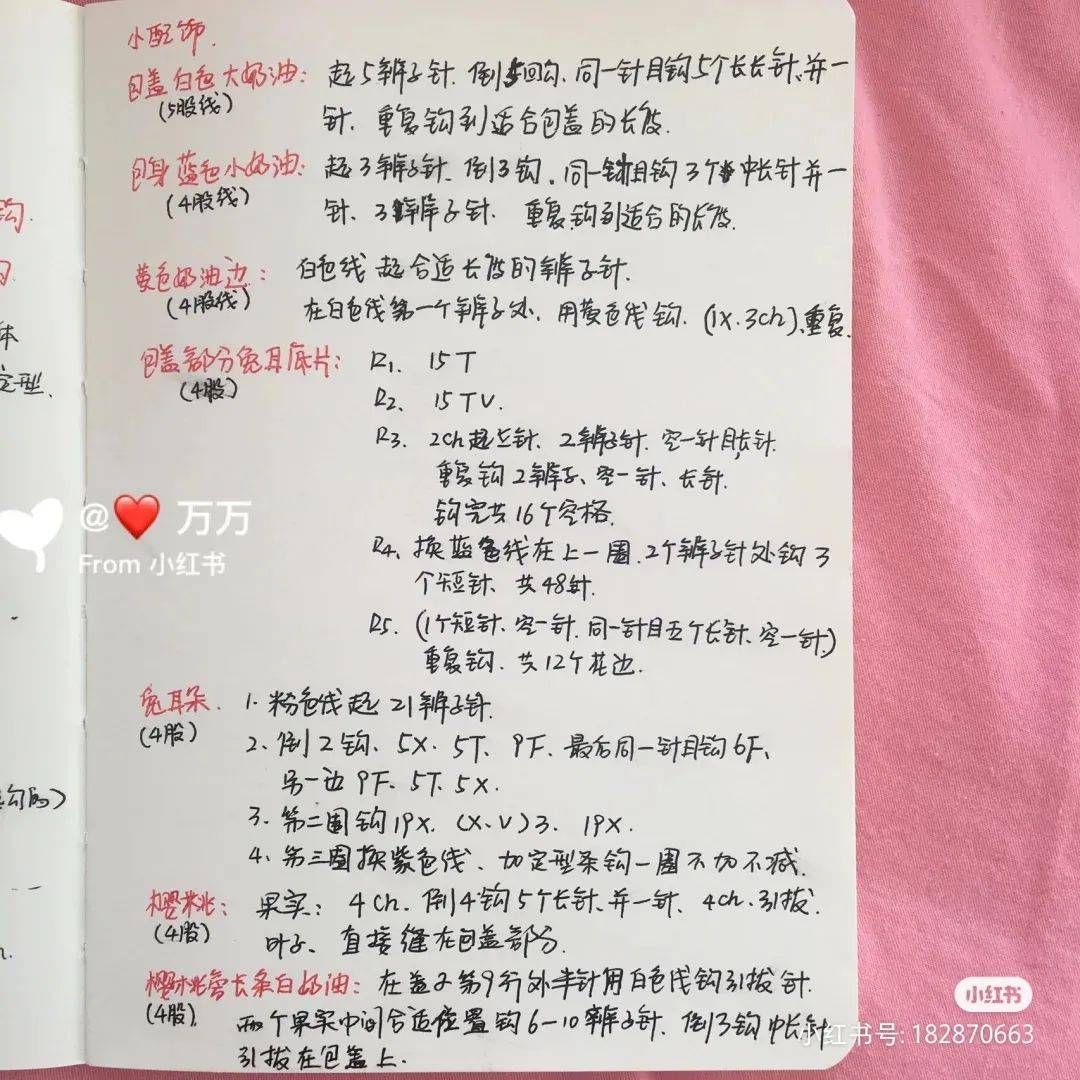 小配饰.
包盖白色大奶油: 起5辫子针. 倒5回勾. 同一针目钩5个长长针、并一
(5股线) 针、重复钩到适合包盖的长度.
包身蓝色小奶油: 起3辫子针、倒3钩. 同一针目钩3个中长针并一
(4股线) 针、3辫子针. 重复钩到适合的长度.
黄色奶油边: 白色线起合适长度的辫子针.
(4股线) 在白色线第一个辫子处、用黄色线钩. (1X.3ch)、重复.
包盖部分兔耳底片: R1、15T
(4股) R2、15TV.
R3、2ch起立针、2辫子针. 空一针目长针.
重复钩2辫子、空一针、长针.
钩完共16个空格.
R4、换蓝色线在上一圈. 2个辫子针处钩3
个短针、共48针.
R5. (1个短针、空一针. 同一针目五个长针、空一针)
重复钩、共12个花边.
兔耳朵. 1. 粉色线起21辫子针.
(4股) 2. 倒2钩、5X. 5T. 9F. 最后同一针目钩6F、
另一边9F、5T、5X.
3. 第二圈钩19X. (X.V)3. 19X.
4. 第三圈换紫色线、加定型条钩一圈不加不减.
樱桃: 果实: 4ch. 倒4钩5个长针、并一针、4ch.引拔.
(4股) 叶子、直接缝在包盖部分.
樱桃旁长条白奶油: 在盖子第9行外半针用白色线钩引拔针.
(4股) 两个果实中间合适位置钩6-10辫子针. 倒3钩中长针
引拔在包盖上.
钩.
体
定型.
勾的)
@❤️ 万万
From 小红书
小红书
小红书号: 182870663